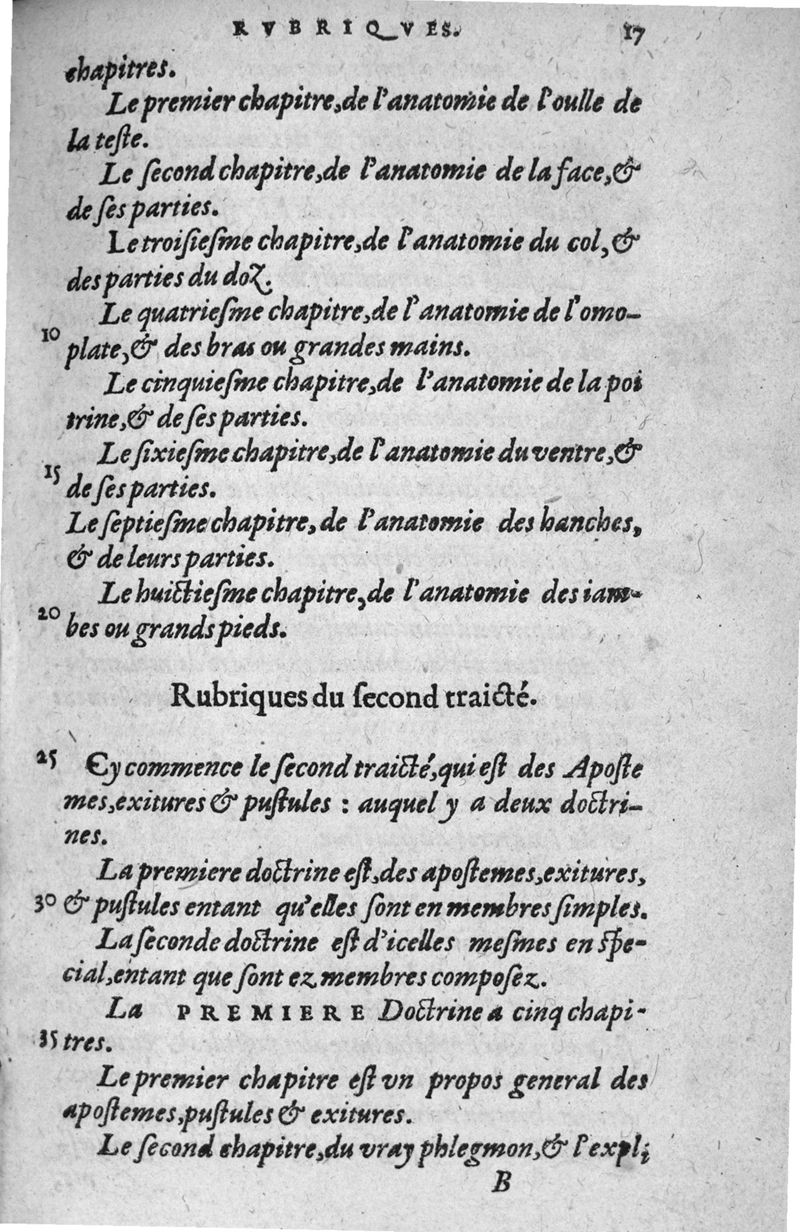 RVBRIQVES. 17
chapitres.
Le premier chapitre, de l'anatomie de l'oulle de
la teſte.
Le ſecond chapitre, de l'anatomie de la face, &
de ſes parties.
Le troiſieſme chapitre, de l'anatomie du col, &
des parties du doz.
Le quatrieſme chapitre, de l'anatomie de l'omo-
10 plate, & des bras ou grandes mains.
Le cinquieſme chapitre, de l'anatomie de la poi
trine, & de ſes parties.
Le ſixieſme chapitre, de l'anatomie du ventre, &
15 de ſes parties.
Le ſeptieſme chapitre, de l'anatomie des hanches,
& de leurs parties.
Le huictieſme chapitre, de l'anatomie des iam-
20 bes ou grands pieds.
Rubriques du ſecond traicté.
25 Cy commence le ſecond traicté, qui eſt des Apoſte
mes, exitures & puſtules : auquel y a deux doctri-
nes.
La premiere doctrine eſt, des apoſtemes, exitures,
30 & puſtules entant qu'elles ſont en membres ſimples.
La ſeconde doctrine eſt d'icelles meſmes en ſpe-
cial, entant que ſont ez membres compoſez.
La PREMIERE Doctrine a cinq chapi-
35 tres.
Le premier chapitre eſt vn propos general des
apoſtemes, puſtules & exitures.
Le ſecond chapitre, du vray phlegmon, & l'expli
B